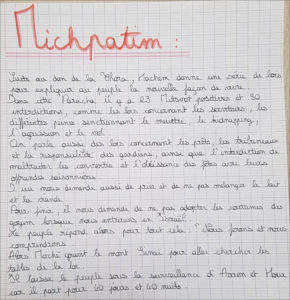 Michpatim :
Suite au don de la Thora, Hachem donne une série de lois
pour expliquer au peuple la nouvelle façon de vivre.
Dans cette Paracha il y a 23 Mitsvot positives et 30
interdictions, comme les lois concernant les serviteurs, les
différentes peines sanctionnant le meurtre, le kidnaping,
l'agression et le vol.
On parle aussi des lois concernant les prêts, les
et la responsabilité des gardiens, ainsi que l'interdiction de
maltraiter les convertis et l'obéissance des fêtes avec leurs
offrandes saisonnières.
nous demande aussi de prier et de ne pas mélanger le lait
et la viande.
Pour finir, il nous demande de ne pas adopter les coutumes des
goyim lorsque nous entrerons en Israël.
Le peuple répond alors pour tout cela : "Nous ferons et nous
comprendrons"
Alors Moché gravit le mont Sinaï pour aller chercher les
tables de la loi.
Il laisse le peuple sous la surveillance d'Aaron et Hour
car il part pour 40 jours et 40 nuits.